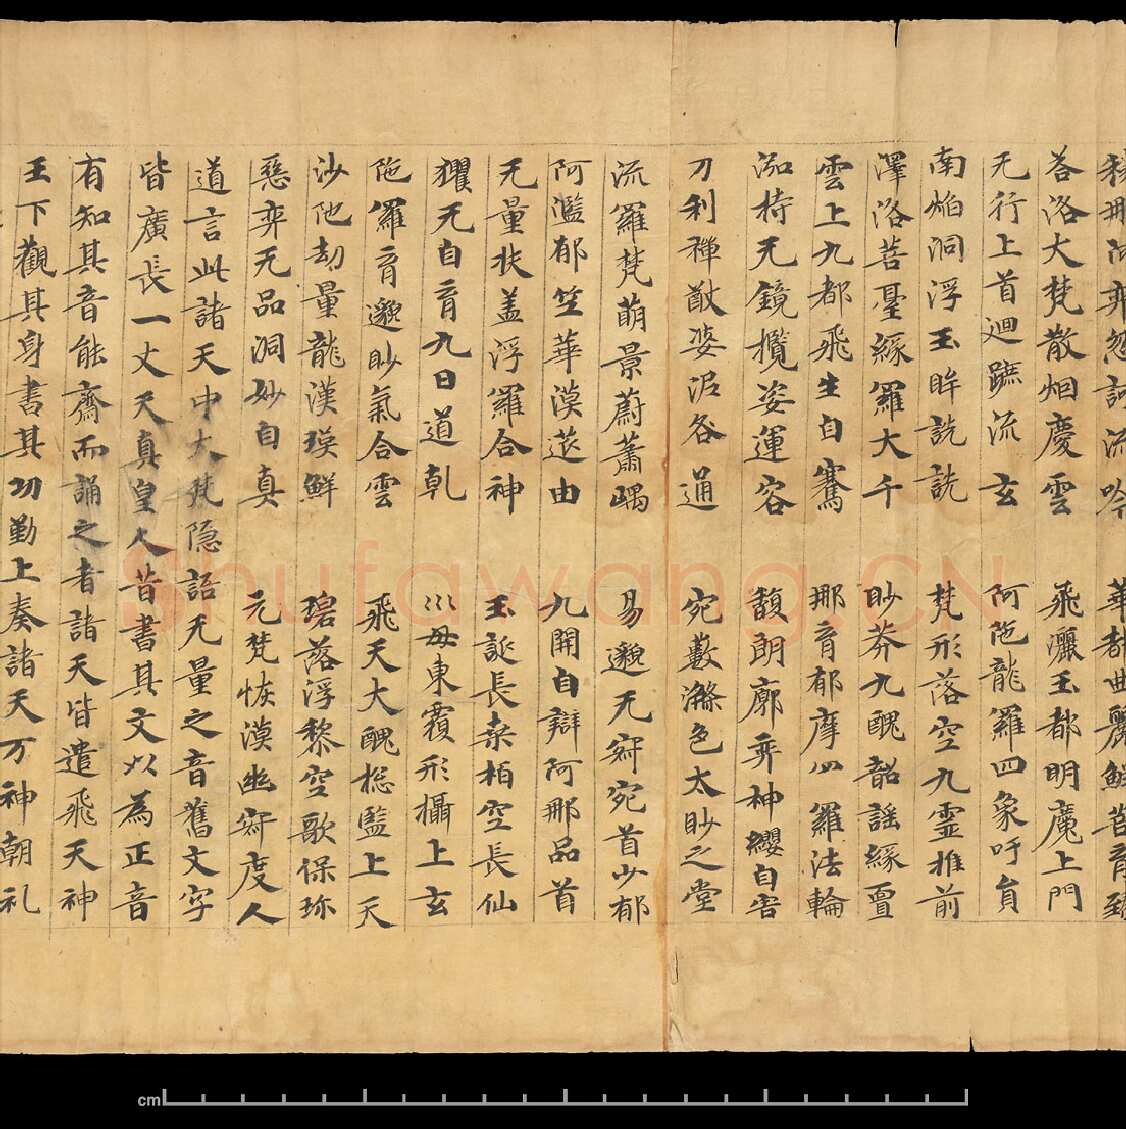 華都曲麗鮮菩育臻
荅洛大梵散烟慶雲 飛灑玉都明魔上門
无行上首迴蹠流玄 阿陁龍羅四象吁員
南焰洞浮玉眸詵詵 梵形落空九靈推前
澤洛菩臺緣羅大千 眇莽九醜韶謡緣亶
雲上九都飛生自騫 那育郁摩㣺羅法輪
泓持无鏡攬姿運容 馥朗廓奕神纓自宮
刀利禪猷婆泥咎通 宛藪滌色太眇之堂
流羅梵萌景蔚蕭嵎 易邈无寂宛首少郁
阿濫郁竺華漠莚由 九開自辯阿那品首
无量扶蓋浮羅合神 玉誕長桒柏空長仙
玃无自育九日道乹 㣺母東覆形攝上玄
陁羅育邈眇氣合雲 飛天大醜揔監上天
沙陁劫量龍漢瑛鮮 碏落浮黎空歌保珎
惡弈无品洞妙自真 元梵恢漠幽寂度人
道言此諸天中大梵隠語无量之音舊文字
皆廣長一丈天真皇人昔書其文以為正音
有知其音能齋而誦之者諸天皆遣飛天神
王下觀其身書其功勤上奏諸天万神朝礼
Shufawang.CN
cm